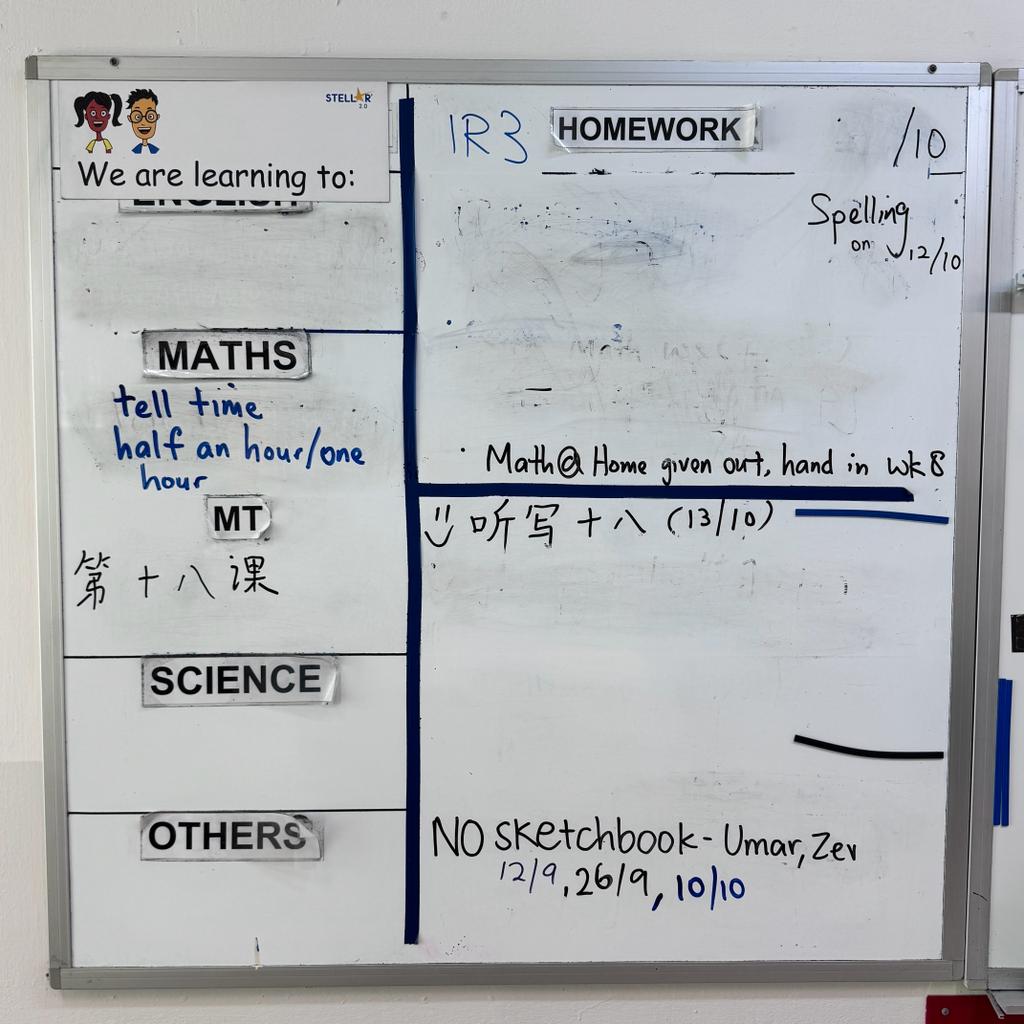 STELLAR 2.0
We are learning to:
ENGLISH
MATHS
tell time
half an hour/one
hour
MT
第十八课
SCIENCE
OTHERS
1R3 HOMEWORK /10
Spelling
on 12/10
Math@Home given out, hand in wk 8
听写十八 (13/10)
NO sketchbook - Umar, Zev
12/9, 26/9, 10/10